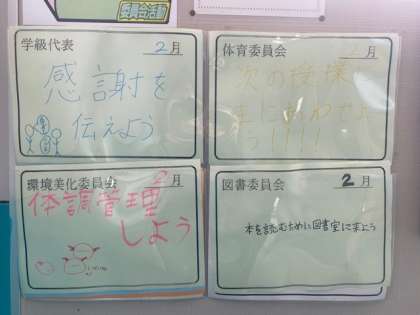 委員会活動
学級代表
2月
感謝を
伝えよう
体育委員会
2月
次の授業
まにあわせよ
う!!!!
環境美化委員会
2月
体調管理
しよう
図書委員会
2月
本を読むために図書室に来よう